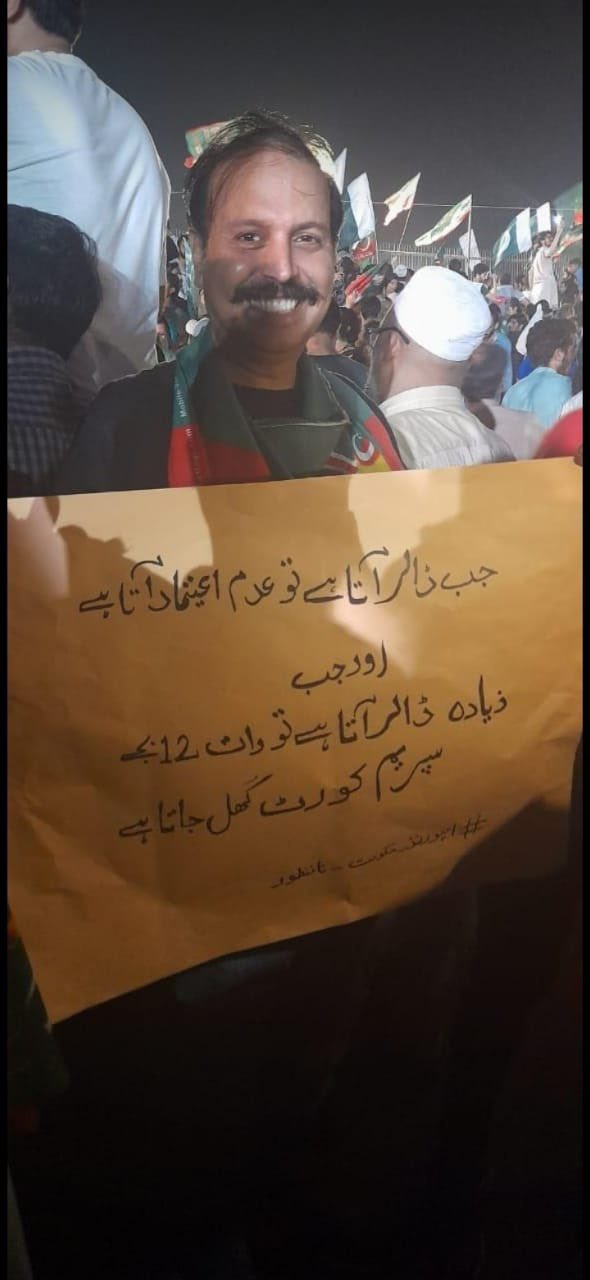 جب ڈالر آتا ہے تو عدم اعتماد آتا ہے
اور جب
زیادہ ڈالر آتا ہے تو رات 12 بجے
سپریم کورٹ کھل جاتا ہے
#امپورٹڈ_حکومت_نامنظور